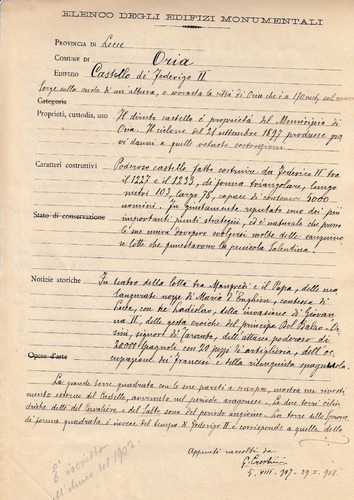 ELENCO DEGLI EDIFIZI MONUMENTALI
PROVINCIA DI Lecce
COMUNE DI Oria
EDIFIZIO Castello di Federigo II
Sorge sulla cresta di un'altura, e sovrasta la città di Oria che è a 170 m. sul mare
Categoria
Proprietà, custodia, uso Il diruto castello è proprietà del Municipio di
Oria. Il ciclone del 21 settembre 1897 produsse gra
vi danni a quelle vetuste costruzioni
Caratteri costruttivi Poderoso castello fatto costruire da Federigo II tra
il 1227 e il 1233, di forma triangolare, lungo
metri 103, largo 76, capace di contenere 5000
uomini. Fu giustamente reputato uno dei più
importanti punti strategici, ed è naturale che presso
Stato di conservazione le sue mura dovessero svolgersi molte delle sanguino
se lotte che funestarono la penisola Salentina.
Notizie storiche Fu teatro della lotta tra Manfredi e il Papa, delle ma
laugurate nozze di Maria d'Enghien, contessa di
Lecce, con re Ladislao, della invasione di Giovan
na II, delle gesta eroiche del principe Del Balzo-Or
sini, signor di Taranto, dell'attacco poderoso di
20000 Spagnoli con 20 pezzi d'artiglieria, dell'oc
Opere d'arte cupazione dei Francesi e della riconquista spagnuola.
La grande torre quadrata con le sue pareti a scarpa, mostra un rivesti
mento esterno del Castello, avvenuto nel periodo aragonese. Le due torri cilin
driche dette del Cavaliere e del Salto sono del periodo angioino. La torre dello Sperone,
di forma quadrata è invece del tempo di Federigo II e corrisponde a quelle dello
Appunti raccolti da
5. VIII. 907 - 29. X. 908.
È iscritto
nell'elenco del 1902.